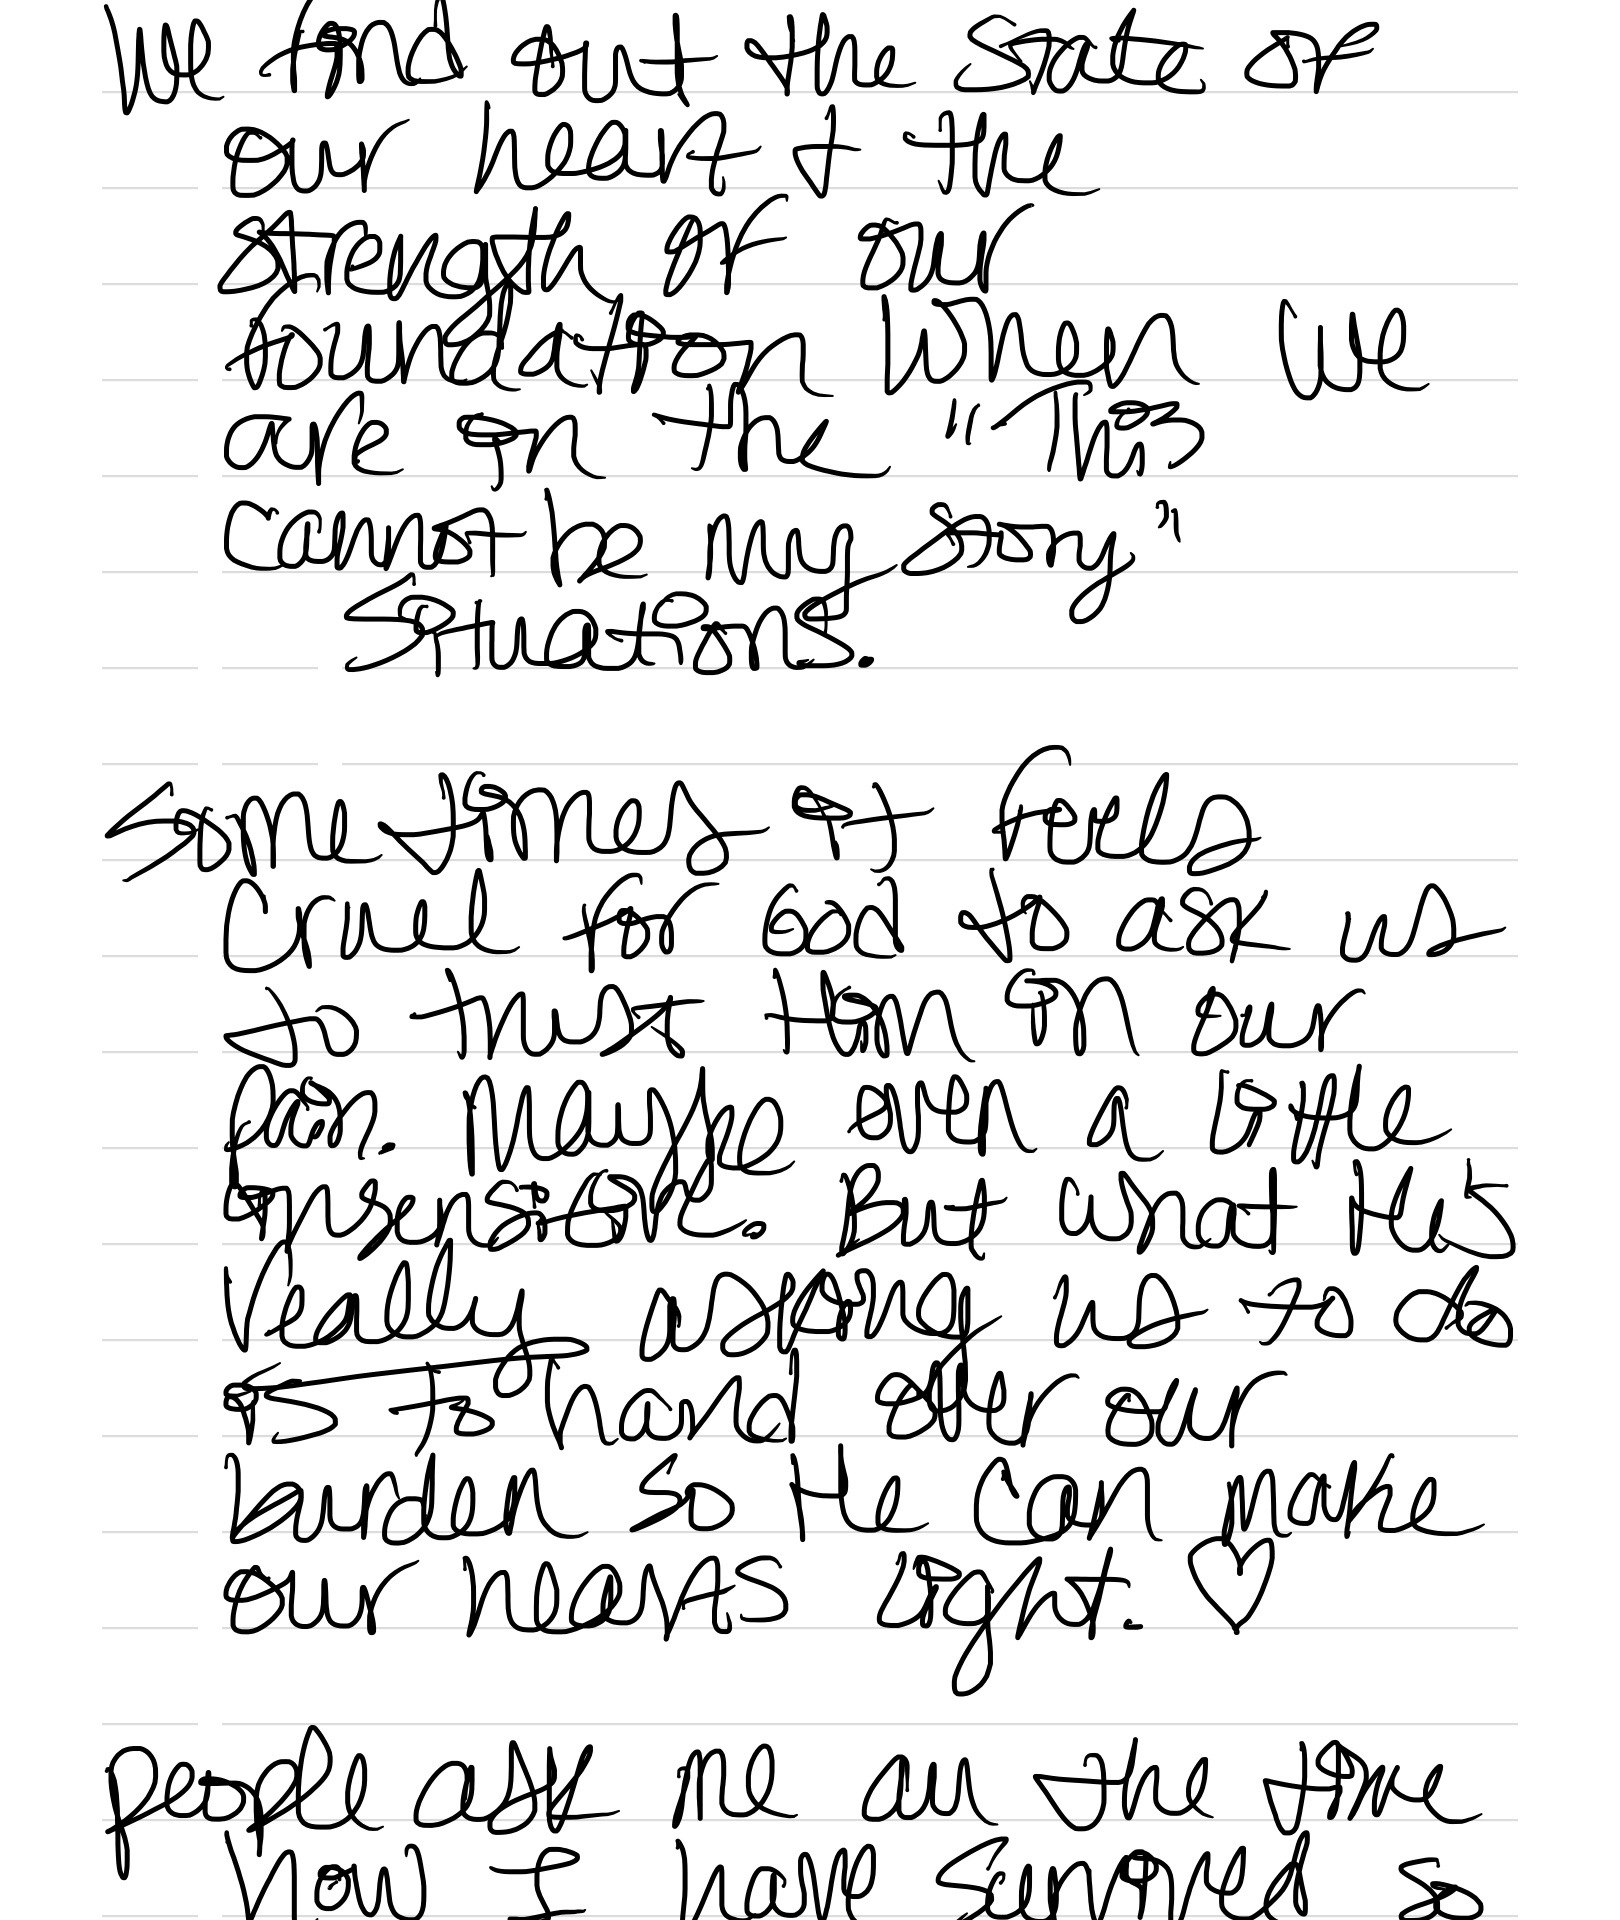 We find out the state of
our heart & the
strength of our
foundation when we
are in the "This
cannot be my story"
situations.
Sometimes it feels
cruel for God to ask us
to trust Him in our
pain. Maybe even a little
insensitive. But what He's
really asking us to do
is to hand over our
burden so He can make
our hearts light. ♡
People ask me all the time
how I have survived so